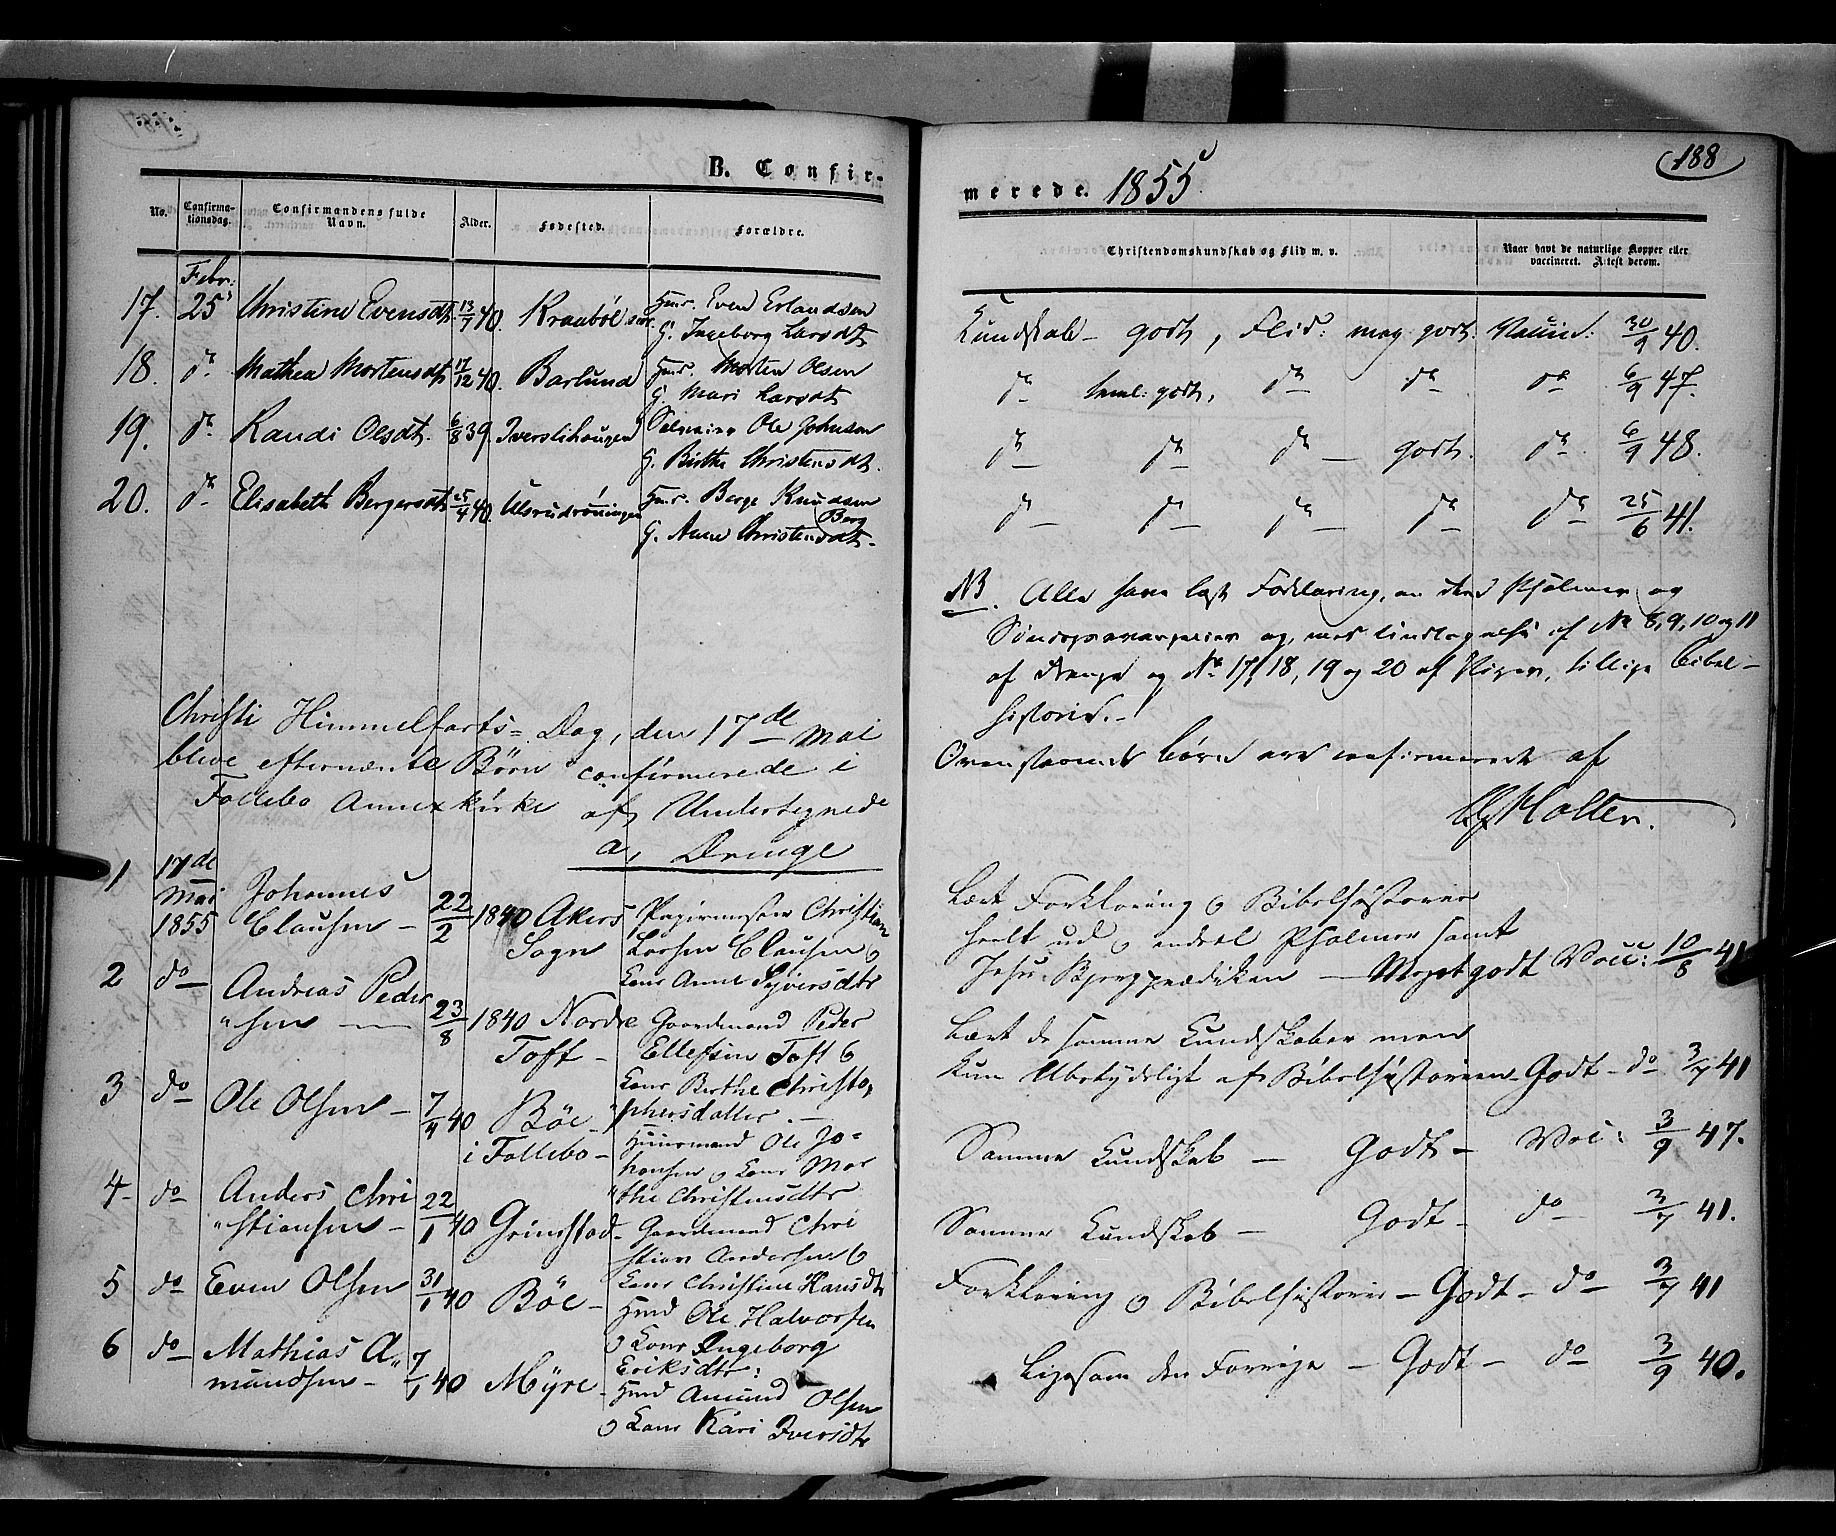 188
B. Confir-
merede. 1855
No.
Confirma-
tionsdag.
Confirmandens fulde
Navn.
Alder.
Fødested.
Forældre.
Christendomskundskab og Flid m. v.
Naar havt de naturlige Kopper eller
vaccineret. Attest derom.
Febr:
17. 25 Christine Evensdt. 13/7 40. Kraabøl Hmd. Even Erlandsen
G. Ingeborg Larsdt
Kundskab - godt, Flid: meg. godt. Vaccin: 30/9 40.
18. do Mathea Mortensdt 17/12 40. Barlund Hmd. Morten Olsen
G. Mari Larsdt
do teml: godt, do do do 6/9 47.
19. do Randi Olsdt. 6/8 39. Iverslihaugen Ole Johnsen
G. Birthe Christensdt.
do do do godt. do 6/9 48.
20. do Elisabeth Bergersdt 25/4 40. Ulsrudrøningen Hmd. Berge Knudsen
Berg
G. Anne Christensdt.
do do do do do 25/6 41.
NB. Alle have læst Forklaring, en Deel Psalmer og
og, med Undtagelse af No 8, 9, 10 og 11
af Drenge og No 17, 18, 19 og 20 af Piger, tillige Bibel-
historie.-
Ovenstaaende Børn ere confirmerede af
Holter.
Christi Himmelfarts= Dag, den 17de Mai
bleve efternævnte Børn confirmerede i
Follebo Annexkirke af Undertegnede
a, Drenge
1 17de Mai 1855 Johannes
Clausen - 22/2 1840 Akers
Sogn
Christian
Larsen Clausen o
Kone Anne Syversdtr
Lært Forklaring o Bibelhistorie
heelt ud o endeel Psalmer samt
Jesu Bjergprædiken - Meget godt Vacc: 10/8 41
2 do Andreas Peder
"sen - 23/8 1840 Nordre
Toft - Gaardmand Peder
Ellefsen Toft o
Kone Berthe Christo,
"phersdatter. -
Lært de samme Kundskaber men
kun Ubetydeligt af Bibelhistorien - Godt - do 3/7 41
3 do Ole Olsen - 7/4 40 Böe -
i Follebo - Huusmand Ole Jo=
hansen o Kone Mar
"the Christensdtr
Samme Kundskab - Godt - Vac: 3/9 47.
4 do Anders Chri
"stiansen - 22/1 40 Grimstad - Gaardmand Chri
stian Andersen o
Kone Christine Hansdt
Samme Kundskab - Godt - do 3/7 41.
5 do Even Olsen 31/1 40 Böe - Hmd Ole Halvorsen
o Kone Ingeborg
Eriksdtr:
Forklaring o Bibelhistorie - Godt - do 3/7 41
6 do Mathias A"
mundsen - 7/1 40 Myre - Hmd Amund Olsen
o Kone Kari Iversdtr
Ligesom den Forrige - Godt - do 3/9 40.